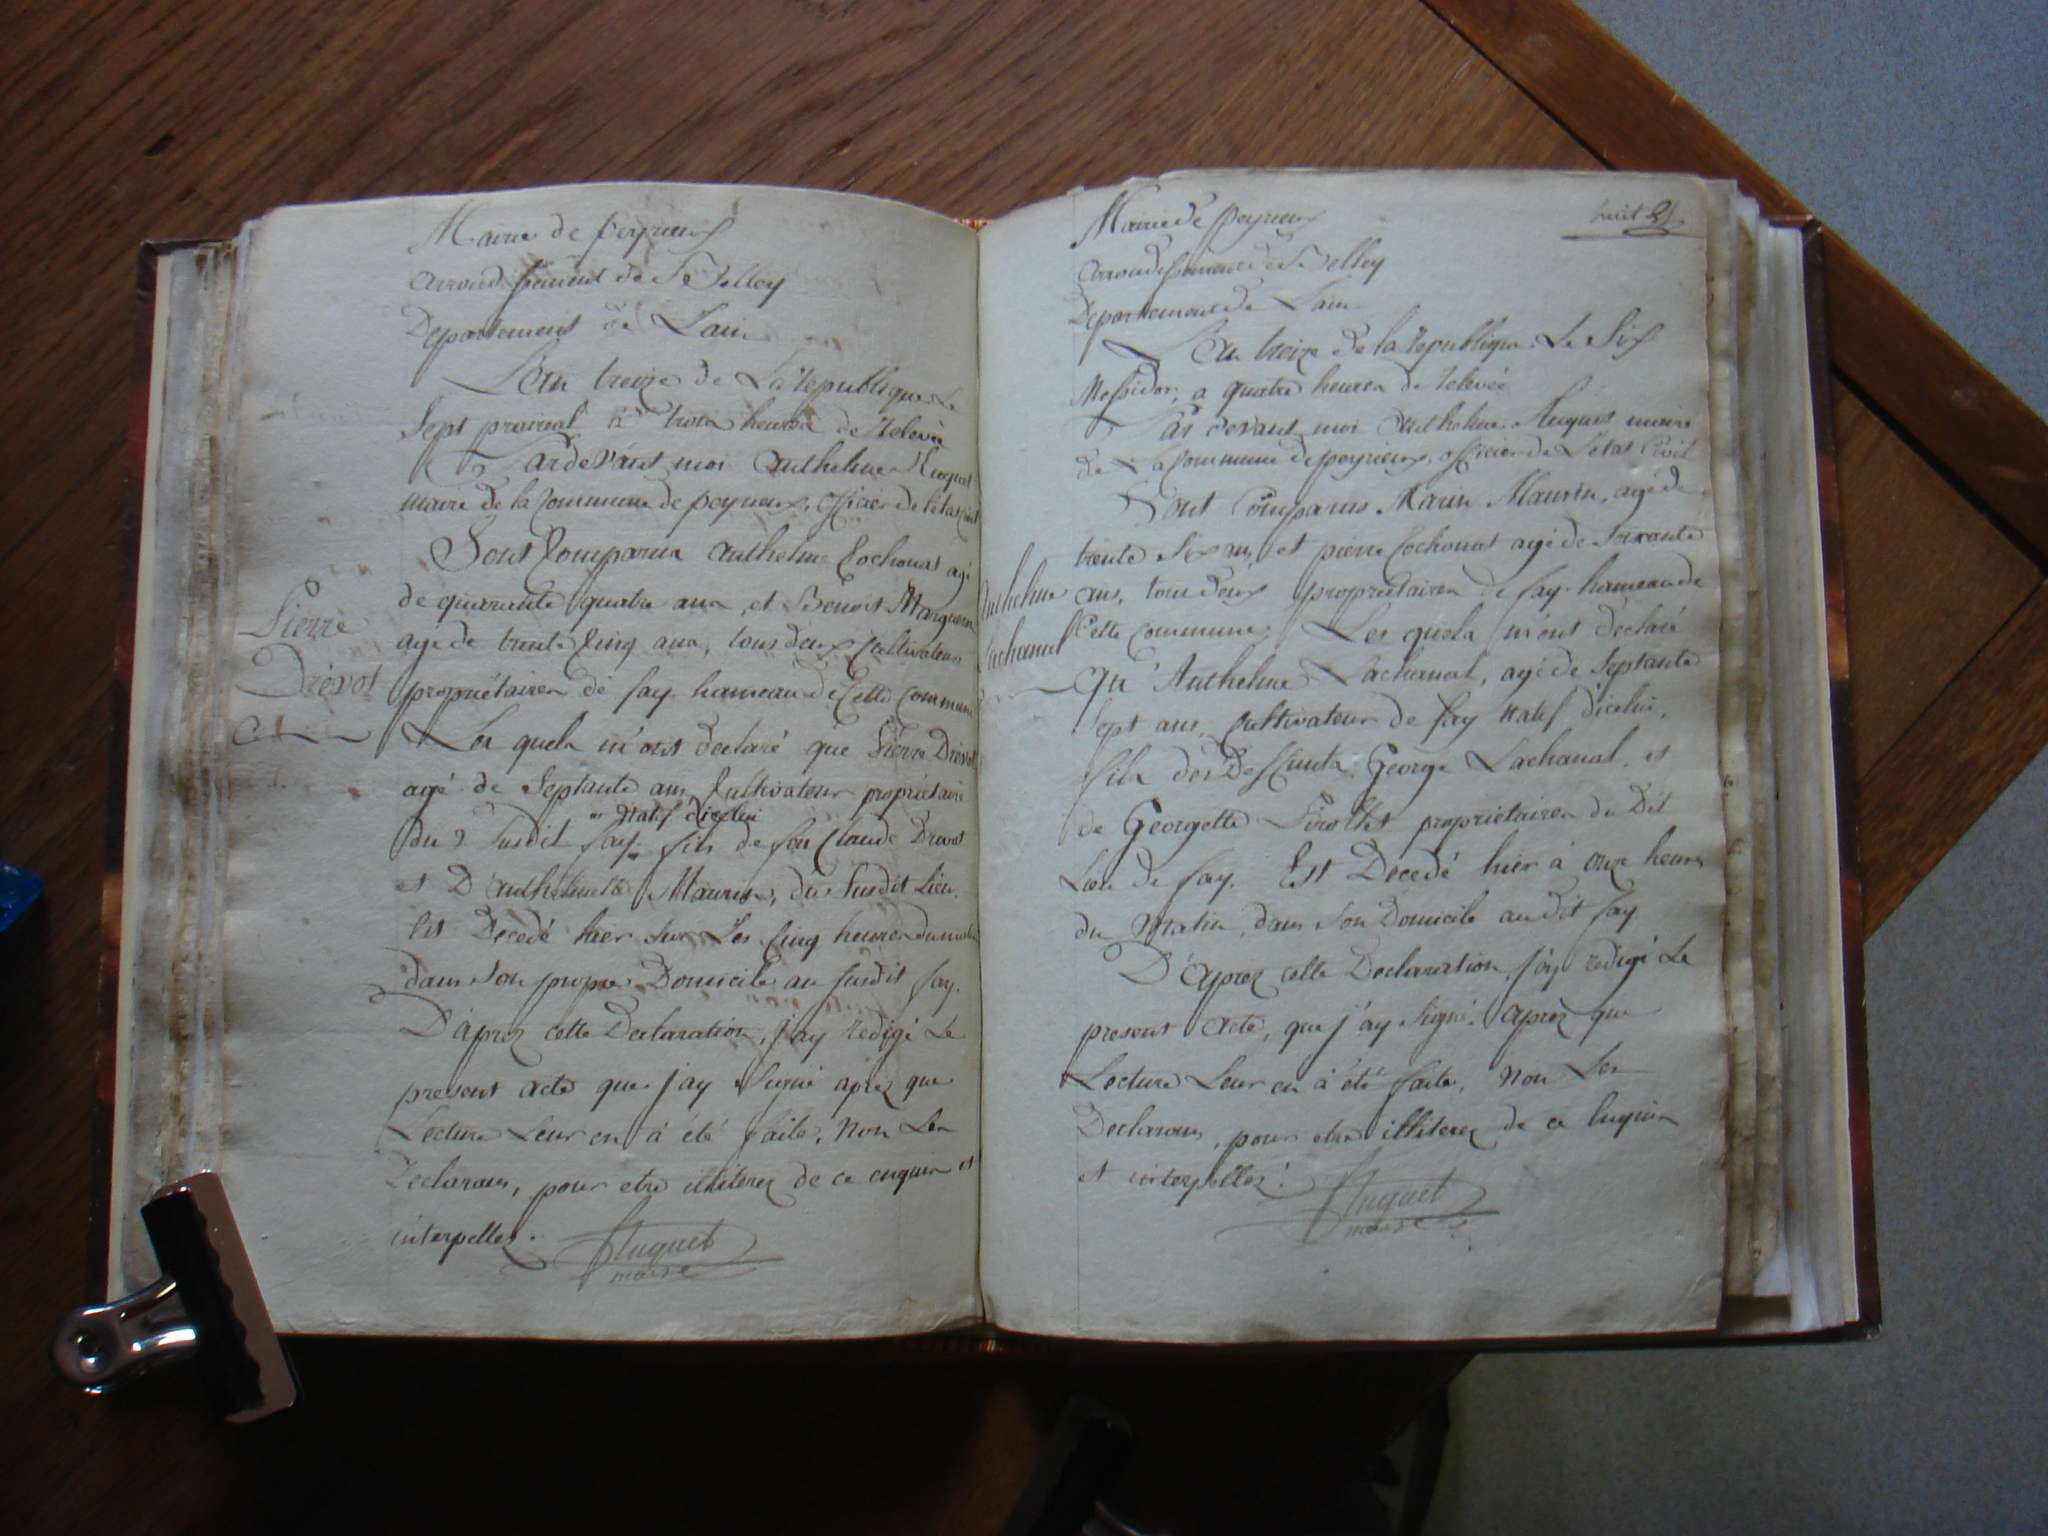 Mairie de peyrieux
arrondissement de Belley
Departement de Lain
L'an treize de La republique Le
Sept prairial à trois heures de Relevée
Pardevant moi Anthelme Huguet
maire de la Commune de peyrieux, officier de l'état Civil
Sont Comparus Anthelme Cochonat agé
de quarante quatre ans, et Benoit Marguerin
Pierre
agé de trente Cinq ans, tous deux Cultivateurs
Drevot
propriétaires de fay hameau de Cette Commune
Les quels m'ont declaré que Pierre Drevot
agé de Septante ans, Cultivateur propriétaire
Natif d'icelui
du Susdit fay. fils de feu Claude Drevot
et D'anthelmette Maurin, du Susdit Lieu.
Est Decedé hier Sur Les Cinq heures du matin
dans Son propre Domicile au Susdit fay.
D'après cette Declaration, j'ay redigé Le
present acte que j'ay Signé après que
Lecture Leur en à été faite, Non Les
Declarans, pour etre illiterez de ce enquis et
interpellez.
Huguet
maire
huit
Mairie de peyrieux
arrondissement de Belley
Departement de Lain
L'an treize de la republique Le Six
Messidor, a quatre heures de relevée
Par devant moi Anthelme Huguet maire
de La Commune de peyrieux, officier de L'etat Civil
Sont Comparus Marin Maurin, agé de
trente Six ans, et pierre Cochonat agé de Soixante
Anthelme
ans, tous deux propriétaires de fay hameau de
Lachanal
Cette Commune; Les quels m'ont declaré
qu'Anthelme Lachanal, agé de Septante
Sept ans, Cultivateur de fay Natif d'icelui,
fils des Deffunts George Lachanal, et
de Georgette propriétaires du Dit
Lieu de fay. Est Decedé hier à onze heures
du Matin, dans Son Domicile au dit fay
D'Après cette Declaration, j'ay redigé Le
present acte, que j'ay Signé. après que
Lecture Leur en à été faite, Non Les
Declarans, pour etre illiterez de ce enquis
et interpellez.
Huguet
maire